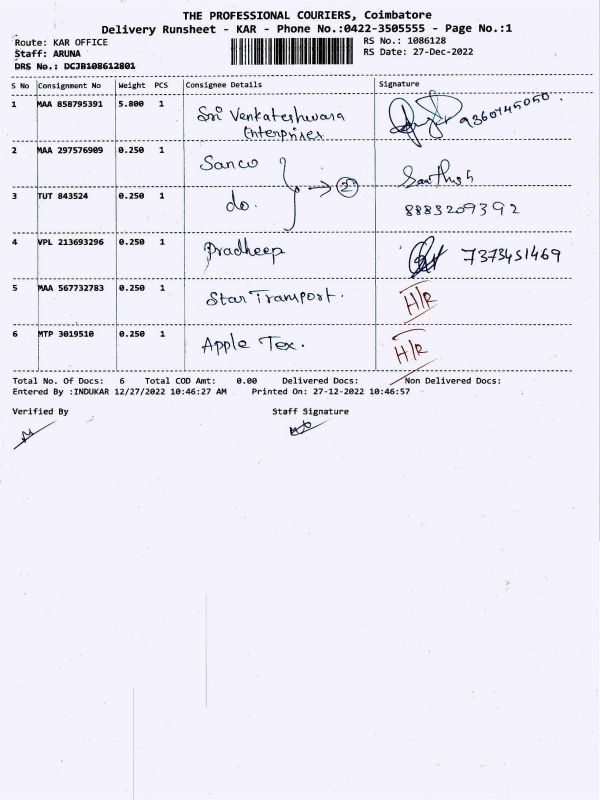 THE PROFESSIONAL COURIERS, Coimbatore
Delivery Runsheet - KAR - Phone No.:0422-3505555 - Page No.:1
Route: KAR OFFICE
RS No.: 1086128
Staff: ARUNA
RS Date: 27-Dec-2022
DRS No.: DCJB108612801
S No Consignment No Weight PCS Consignee Details Signature
1 MAA 858795391 5.800 1 Sri Venkateshwara
Enterprises
2 MAA 297576909 0.250 1 Sanco Santhosh
3 TUT 843524 0.250 1 do. → 2 8883209392
4 VPL 213693296 0.250 1 Pradheep 7373451469
5 MAA 567732783 0.250 1 Star Transport. H/R
6 MTP 3019510 0.250 1 Apple Tex. H/R
Total No. Of Docs: 6 Total COD Amt: 0.00 Delivered Docs: Non Delivered Docs:
Entered By :INDUKAR 12/27/2022 10:46:27 AM Printed On: 27-12-2022 10:46:57
Verified By Staff Signature